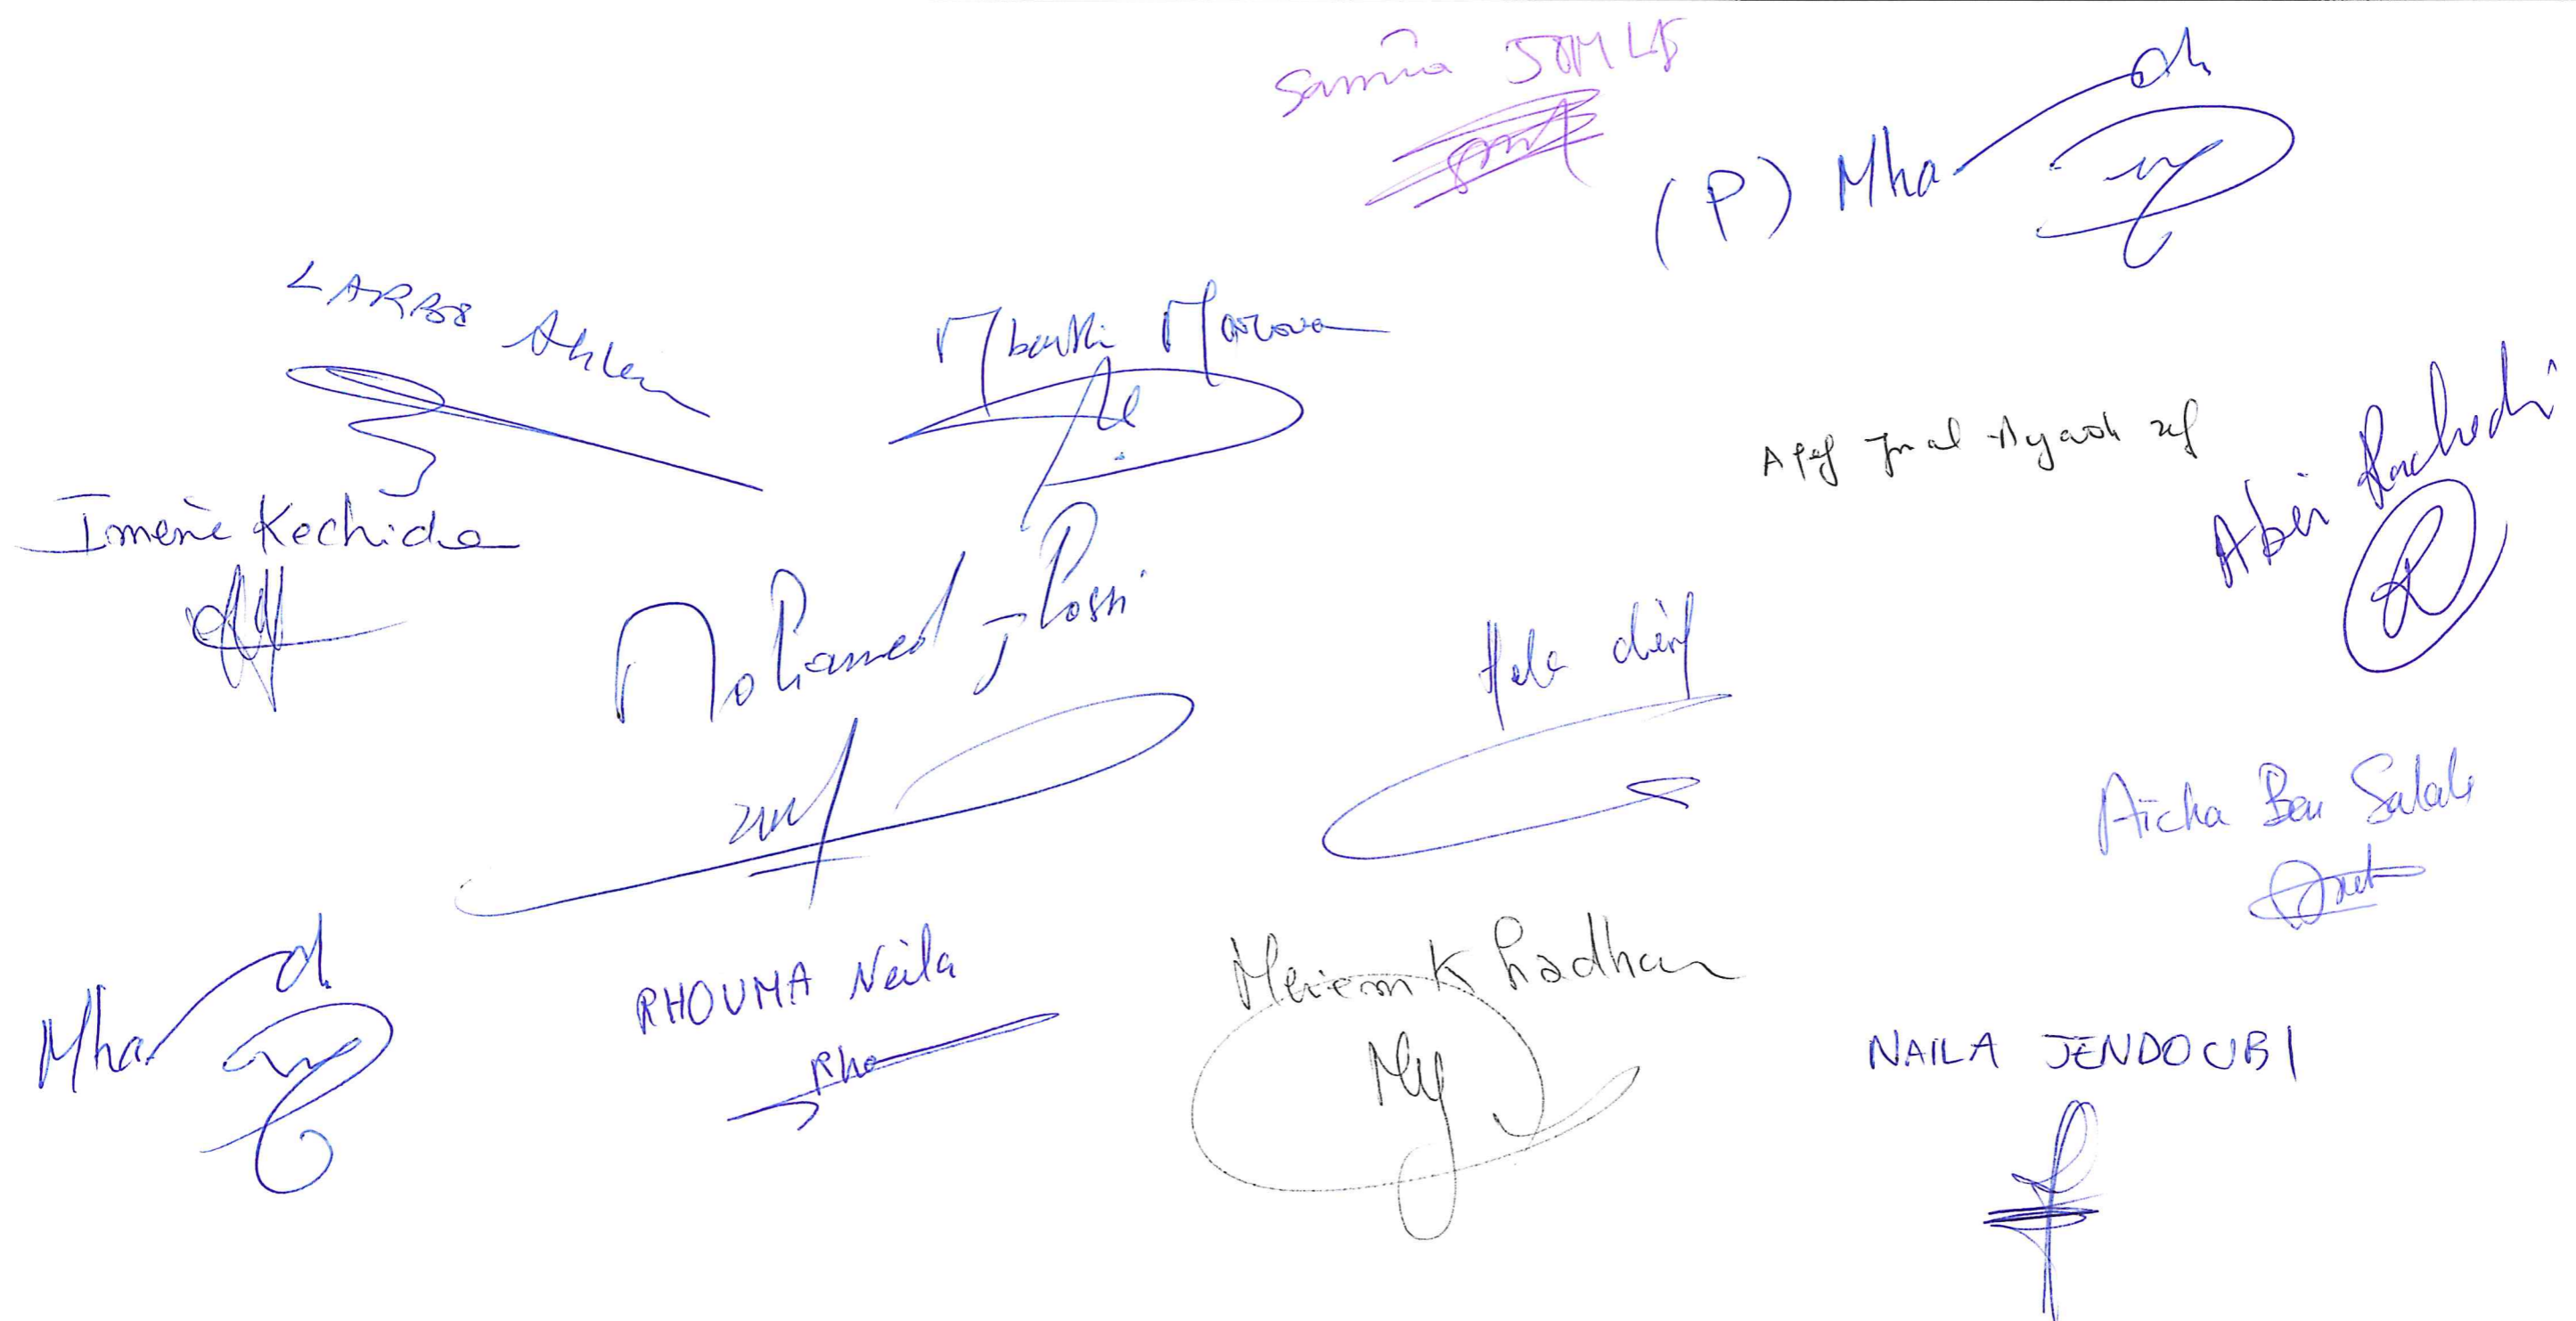 Samia JOMLI
(P) Mha
LARBI Ahlem
Mbarki Marwa
Abir Rachedi
Imene Kechida
Mohamed Jlassi
Hela chérif
Aicha Ben Salah
Mha
RHOUMA Neila
Rho
Meriem Khadhar
NAILA JENDOUBI